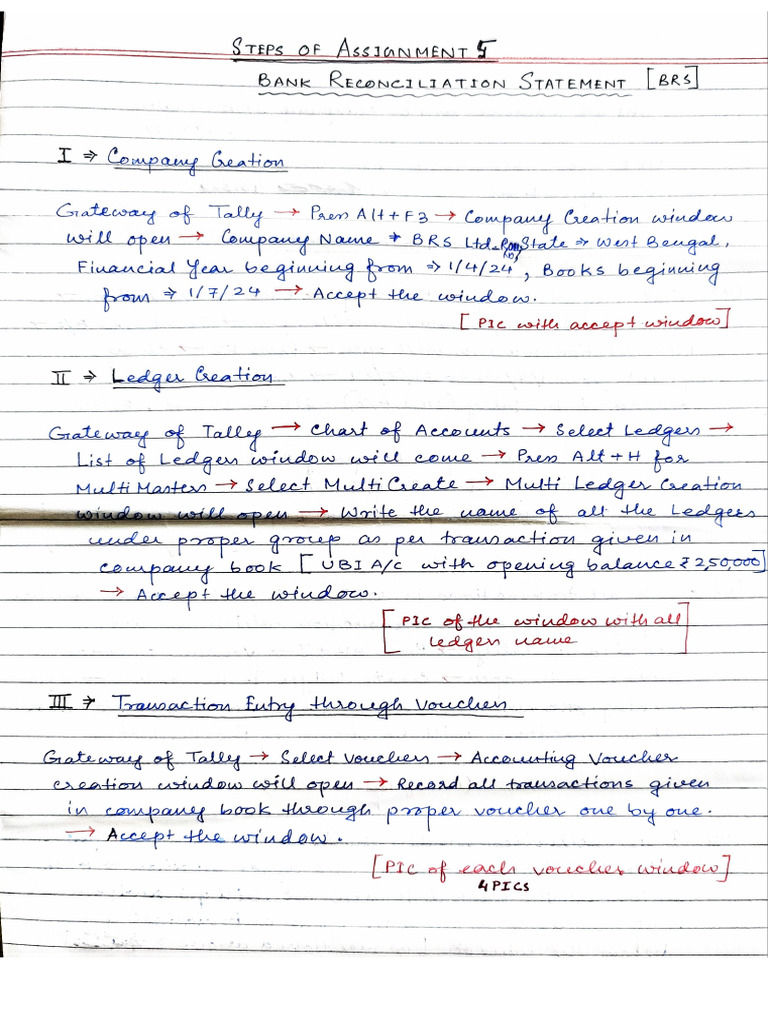 STEPS OF ASSIGNMENT 5
BANK RECONCILIATION STATEMENT [BRS]
I ⇒ Company Creation
Gateway of Tally → Press Alt+F3 → Company Creation window
will open → Company Name → BRS Ltd- State ⇒ West Bengal,
Financial Year beginning from ⇒ 1/4/24, Books beginning
from ⇒ 1/7/24 → Accept the window.
[PIC with accept window]
II ⇒ Ledger Creation
Gateway of Tally → Chart of Accounts → Select Ledgers →
List of Ledgers window will come → Press Alt+H for
Multi Masters → Select Multi Create → Multi Ledger Creation
window will open → Write the name of all the Ledgers
under proper group as per transaction given in
company book [UBI A/c with opening balance ₹ 2,50,000]
→ Accept the window.
[PIC of the window with all
ledger name]
III → Transaction Entry through Voucher
Gateway of Tally → Select Vouchers → Accounting Voucher
creation window will open → Record all transactions given
in company book through proper voucher one by one.
→ Accept the window.
[PIC of each voucher window]
4 PICS